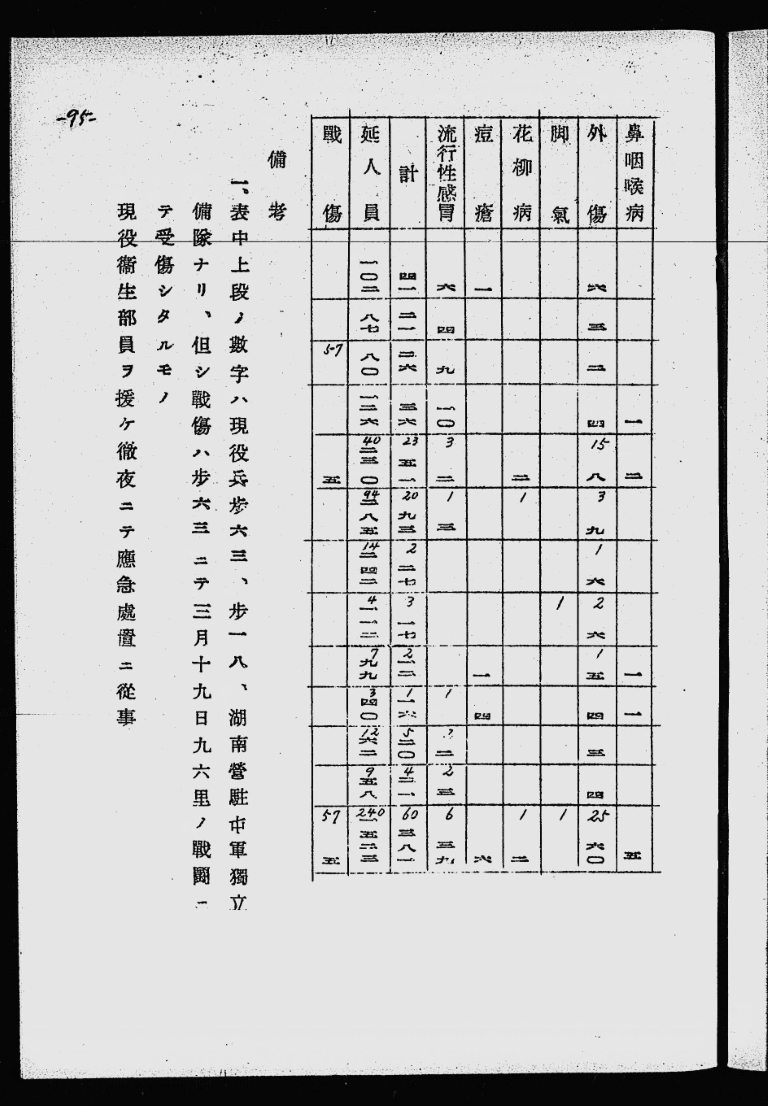 -95-
鼻咽喉病 一 二 一 一 五
外傷 六 三 二 四 15 八 3 九 1 六 2 六 1 五 四 三 四 25 六〇
脚氣 1 1
花柳病 二 1 1 二
痘瘡 一 一 四 六
流行性感冒 六 四 九 一〇 3 二 1 三 1 二 2 三 6 三九
計 四一 二一 二六 三六 23 五一 20 九三 2 二七 3 一七 2 一二 1 一六 5 二〇 4 二一 60 三八一
延人員 一〇二 八七 八〇 一二六 40 二三〇 94 二八五 14 二四二 4 一一二 7 九九 3 四〇 12 六二 9 五八 240 一五二三
戰傷 57 五 57 五
備考
一、表中上段ノ數字ハ現役兵步六三、步一八、湖南營駐屯軍獨立
備隊ナリ、但シ戰傷ハ步六三ニテ三月十九日九六里ノ戰鬪ニ
テ受傷シタルモノ
現役衞生部員ヲ援ケ徹夜ニテ應急處置ニ從事